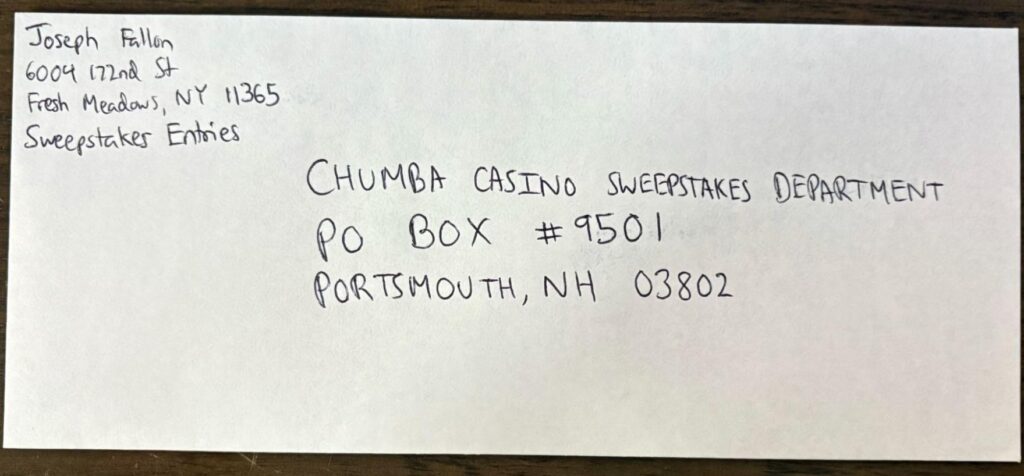 Joseph Fallon
6004 172nd St
Fresh Meadows, NY 11365
Sweepstakes Entries
CHUMBA CASINO SWEEPSTAKES DEPARTMENT
PO BOX #9501
PORTSMOUTH, NH 03802